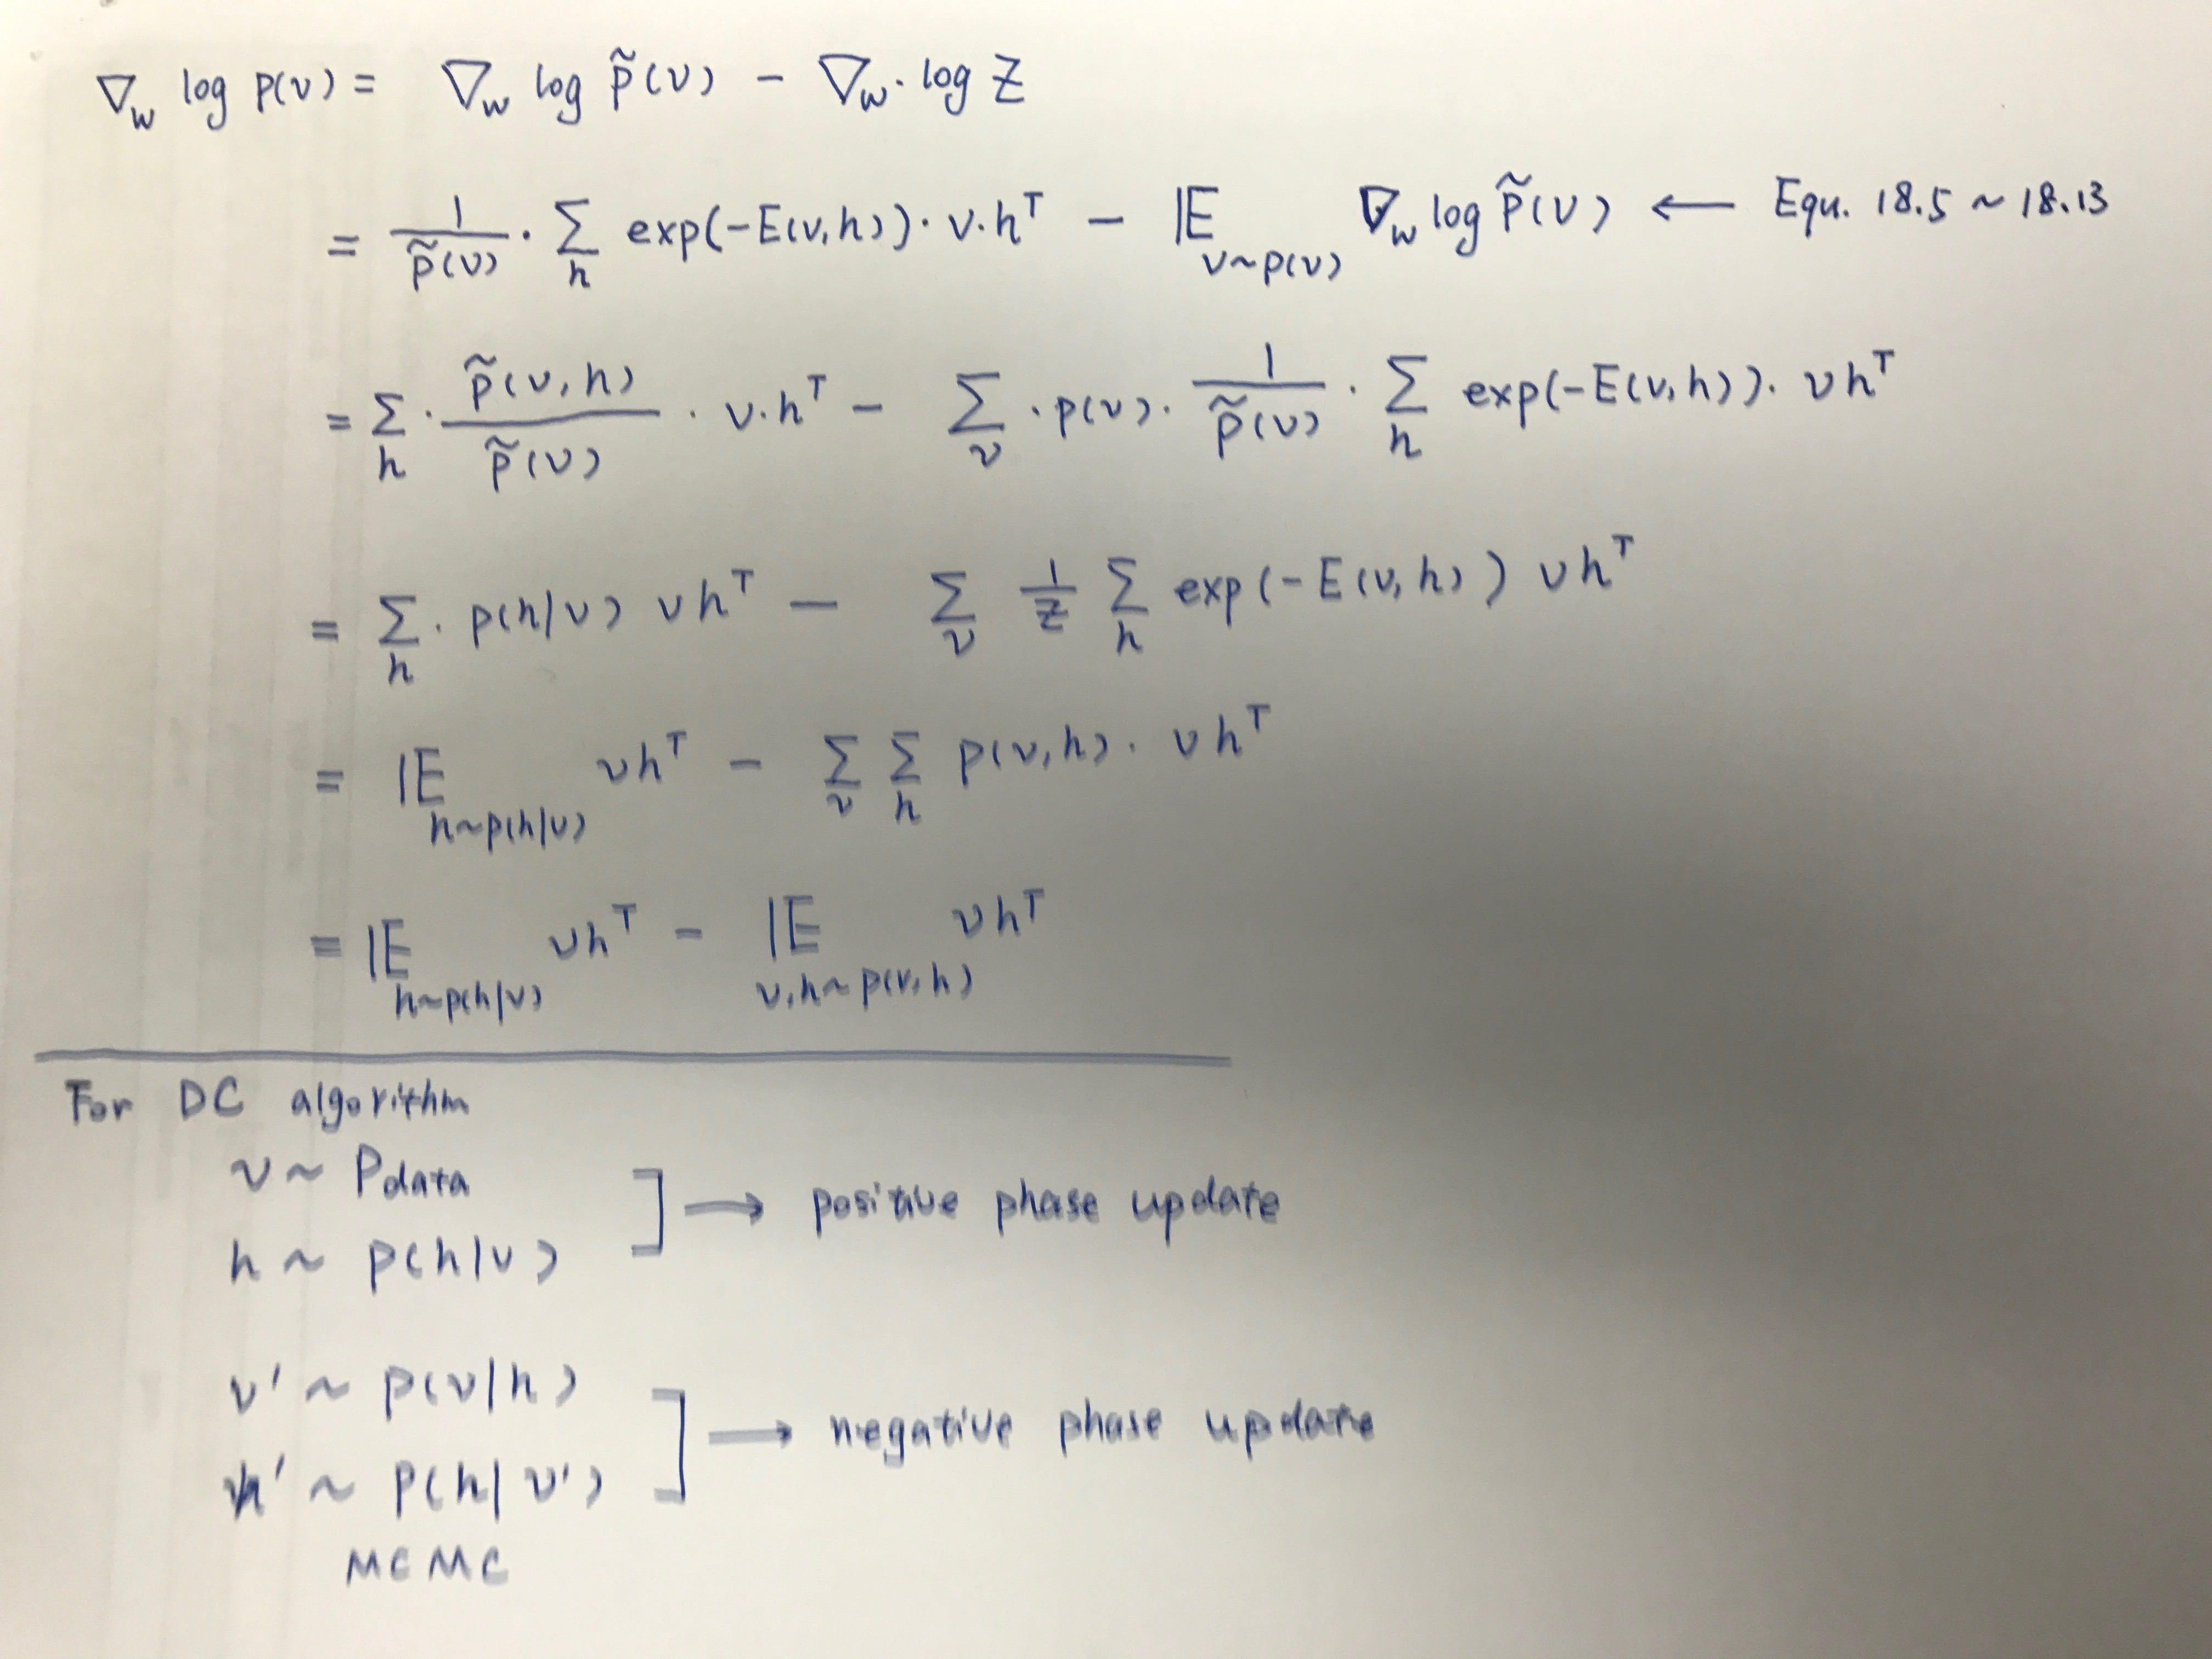 ∇_w log p(v) = ∇_w log p̃(v) − ∇_w · log Z
= 1/p̃(v) · Σ_h exp(−E(v,h)) · v·h^T − 𝔼_{v~p(v)} ∇_w log p̃(v) ← Equ. 18.5 ~ 18.13
= Σ_h · p̃(v,h)/p̃(v) · v·h^T − Σ_v · p(v) · 1/p̃(v) · Σ_h exp(−E(v,h)) · vh^T
= Σ_h · p(h|v) vh^T − Σ_v 1/Z Σ_h exp(−E(v,h)) vh^T
= 𝔼_{h~p(h|v)} vh^T − Σ_v Σ_h p(v,h) · vh^T
= 𝔼_{h~p(h|v)} vh^T − 𝔼_{v,h~p(v,h)} vh^T
For DC algorithm
v ~ Pdata
h ~ p(h|v) ] → positive phase update
v' ~ p(v|h)
h' ~ p(h|v') ] → negative phase update
MCMC